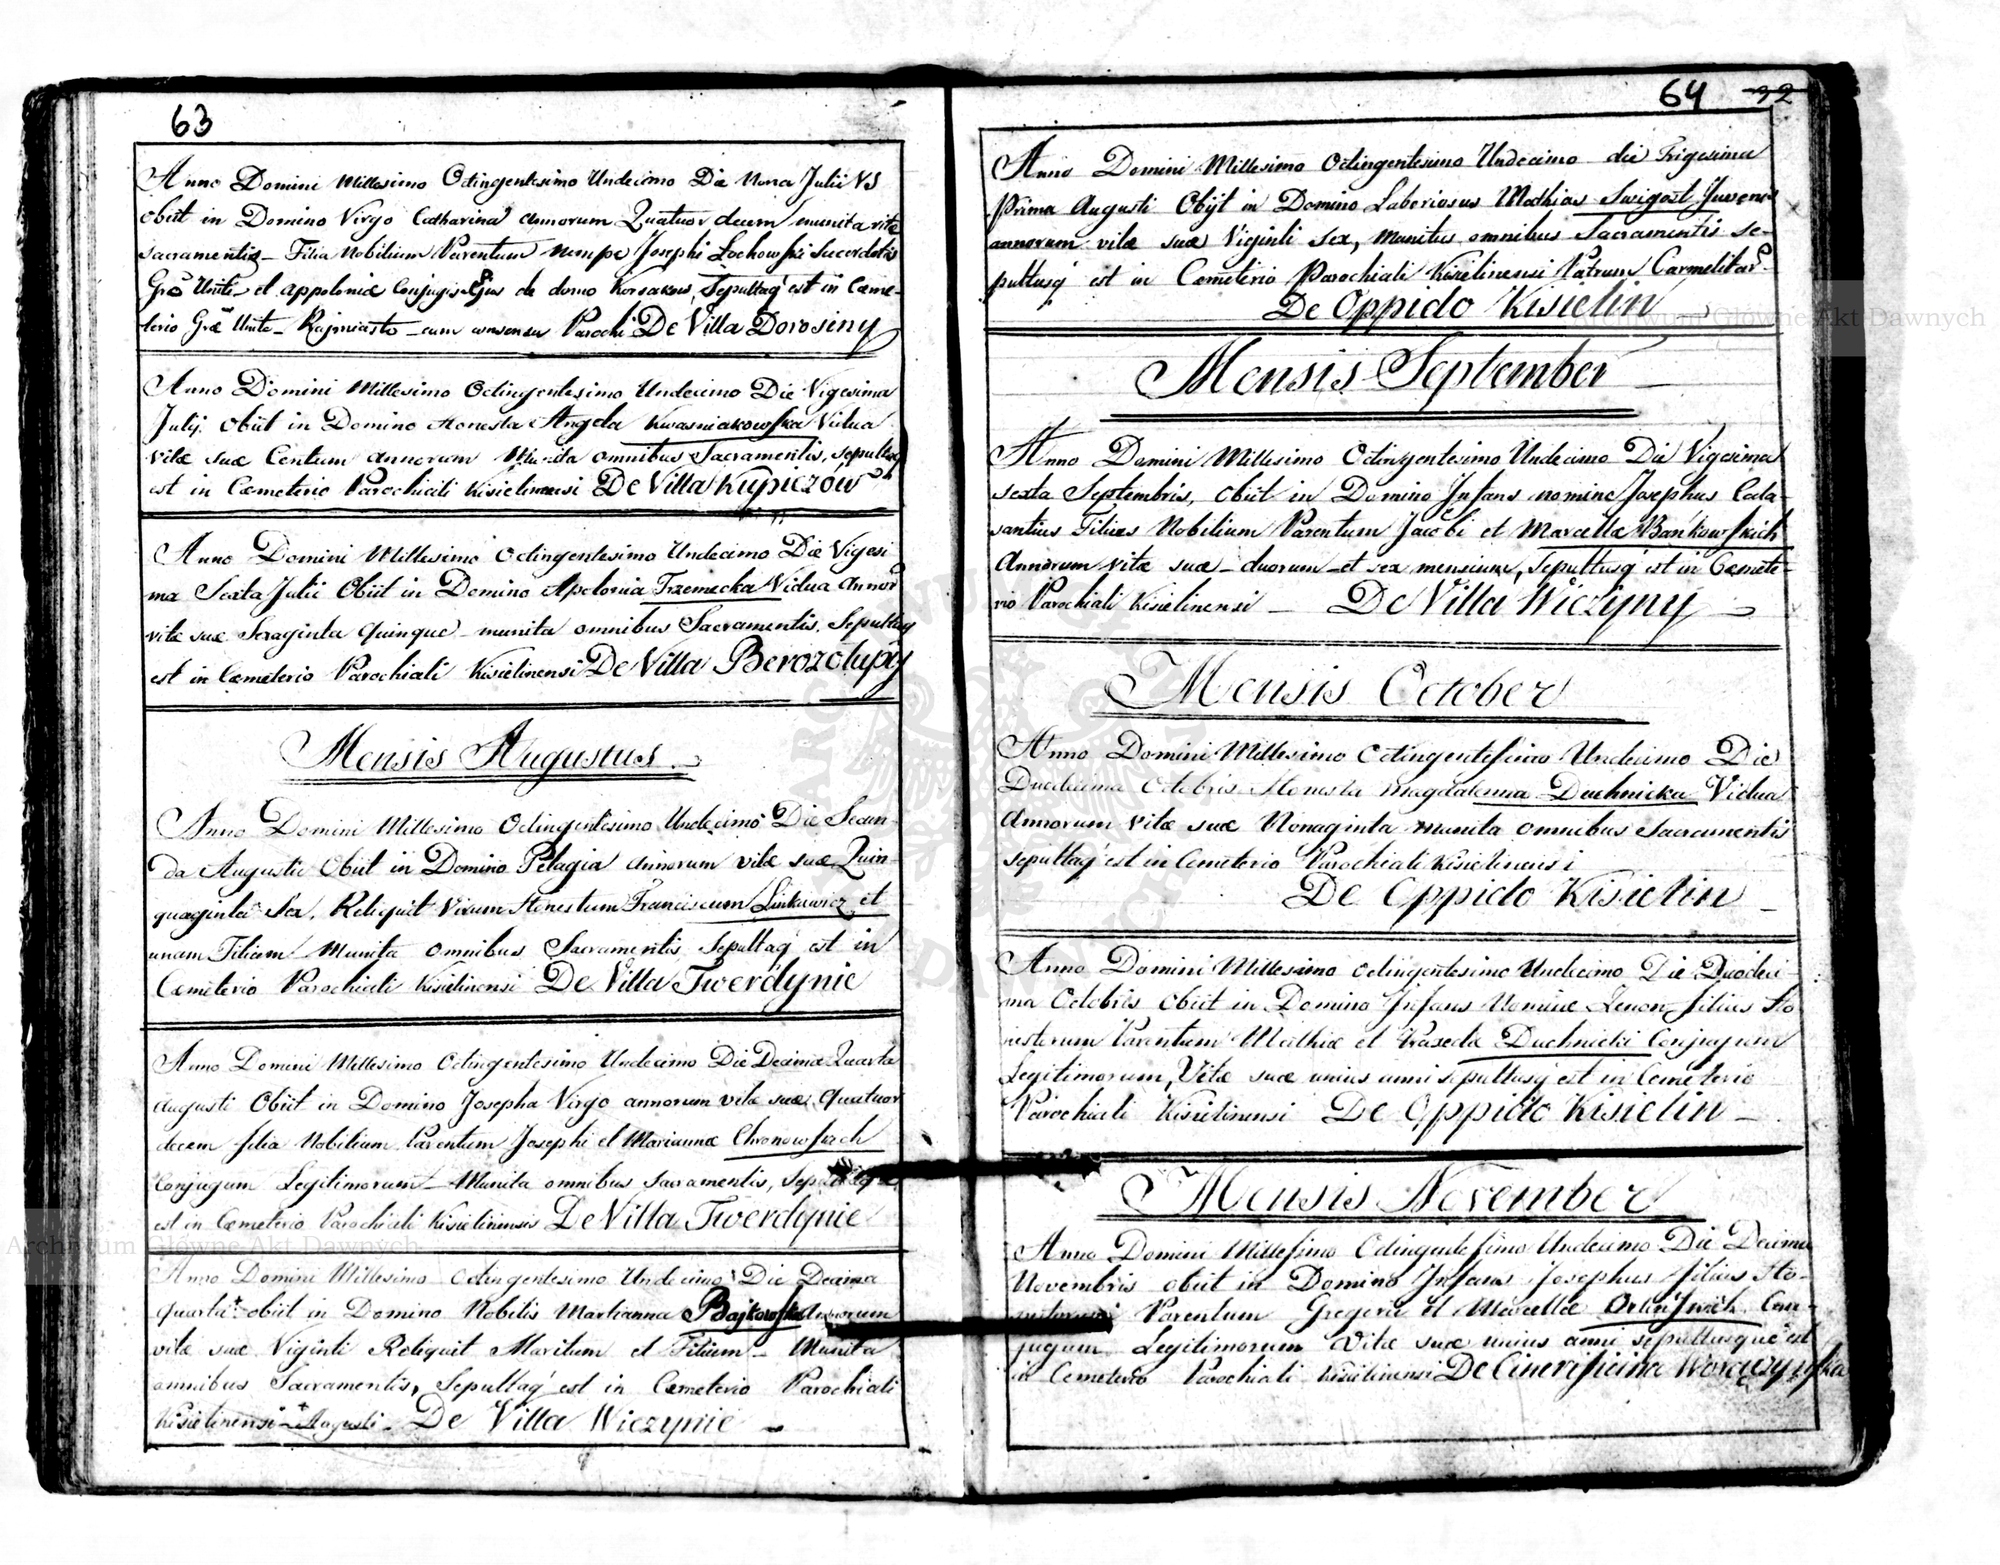 63
Anno Domini Millesimo Octingentesimo Undecimo Die Nona Julii VS
obiit in Domino Virgo Catharina annorum Quatuor decem munita rite
sacramentis Filia Nobilium Parentum nempe Josephi Łochowski Sacerdotis
Grae Unit et Appoloniae Conjugis Ejus de domo Korsakow, Sepultaq est in Cæme-
terio Græ Unit Rujmiasto cum consensu Parochi De Villa Dorosiny
Anno Domini Millesimo Octingentesimo Undecimo Die Vigesima
Julij Obiit in Domino Honesta Angela Kwasniakowska Vidua
vitæ suæ Centum annorum Munita omnibus Sacramentis, sepultaq
est in Cæmeterio Parochiali Kisielinensi De Villa Kupiczów
Anno Domini Millesimo Octingentesimo Undecimo Die Vigesi
ma Sexta Julii Obiit in Domino Apolonia Trzemecka Vidua Annor
vitæ suæ Sexaginta Quinque munita omnibus Sacramentis, Sepultaq
est in Cæmeterio Parochiali Kisielinensi De Villa Berozołupy
Mensis Augustus
Anno Domini Millesimo Octingentesimo Undecimo Die Secun
da Augusti Obiit in Domino Pelagia annorum vitæ suæ Quin
quaginta Sex, Reliquit Virum Honestum Franciscum Linkiewicz et
unam Filiam Munita omnibus Sacramentis, Sepultaq est in
Cæmeterio Parochiali Kisielinensi De Villa Twerdynie
Anno Domini Millesimo Octingentesimo Undecimo Die Decima Quarta
Augusti Obiit in Domino Josepha Virgo annorum vitæ suæ Quatuor
decem filia Nobilium Parentum Josephi et Mariannæ Chronowskich
Conjugum Legitimorum Munita omnibus sacramentis, Sepultaq
est in Cæmeterio Parochiali Kisielinensis De Villa Twerdynie
Anno Domini Millesimo Octingentesimo Undecimo Die Decima
Quarta + obiit in Domino Nobilis Marianna Bajkowska Annorum
vitæ suæ Viginti Reliquit Maritum et Filium Munita
omnibus Sacramentis, Sepultaq est in Cæmeterio Parochiali
Kisielinensi + Augusti De Villa Wiczynie
64 32
Anno Domini Millesimo Octingentesimo Undecimo die Trigesima
Prima Augusti Obijt in Domino Laboriosus Mathias Swigost Juvenis
annorum vitæ suæ Viginti Sex, Munitus omnibus Sacramentis Se-
pultusq est in Cæmeterio Parochiali Kisielinensi Patrum Carmelitar
De Oppido Kisielin
Mensis September
Anno Domini Millesimo Octingentesimo Undecimo Die Vigesima
sexta Septembris, Obiit in Domino Infans nomine Josephus Cala-
santius Filius Nobilium Parentum Jacobi et Marcella Bańkowskich
Annorum vitæ suæ duorum et sex mensium, Sepultusq est in Cæmete-
rio Parochiali Kisielinensi De Villa Wiczyny
Mensis October
Anno Domini Millesimo Octingentesimo Undecimo Die
Duodecima Octobris Honesta Magdalenna Duchnicka Vidua
Annorum vitæ suæ Nonaginta munita omnibus Sacramentis
sepultaq est in Cemeterio Parochiali Kisielinensi
De Oppido Kisielin
Anno Domini Millesimo Octingentesimo Undecimo Die Duodeci-
ma Octobris Obiit in Domino Infans Nomine Zenon filius Ho
nestorum Parentum Mathiæ et Praxeda Duchnicki Conjugum
Legitimorum, Vitæ suæ unius anni sepultusq est in Cemeterio
Parochiali Kisielinensi De Oppido Kisielin
Mensis November
Anno Domini Millesimo Octingentesimo Undecimo Die Decima
Novembris obiit in Domino Infans Josephus filius Ho-
nestorum Parentum Gregorii et Marcellæ Con-
jugum Legitimorum Vitæ suæ unius anni sepultusque est
in Cemeterio Parochiali Kisielinensi De Cinerificina Woroczynska
Archiwum Główne Akt Dawnych
Archiwum Główne Akt Dawnych